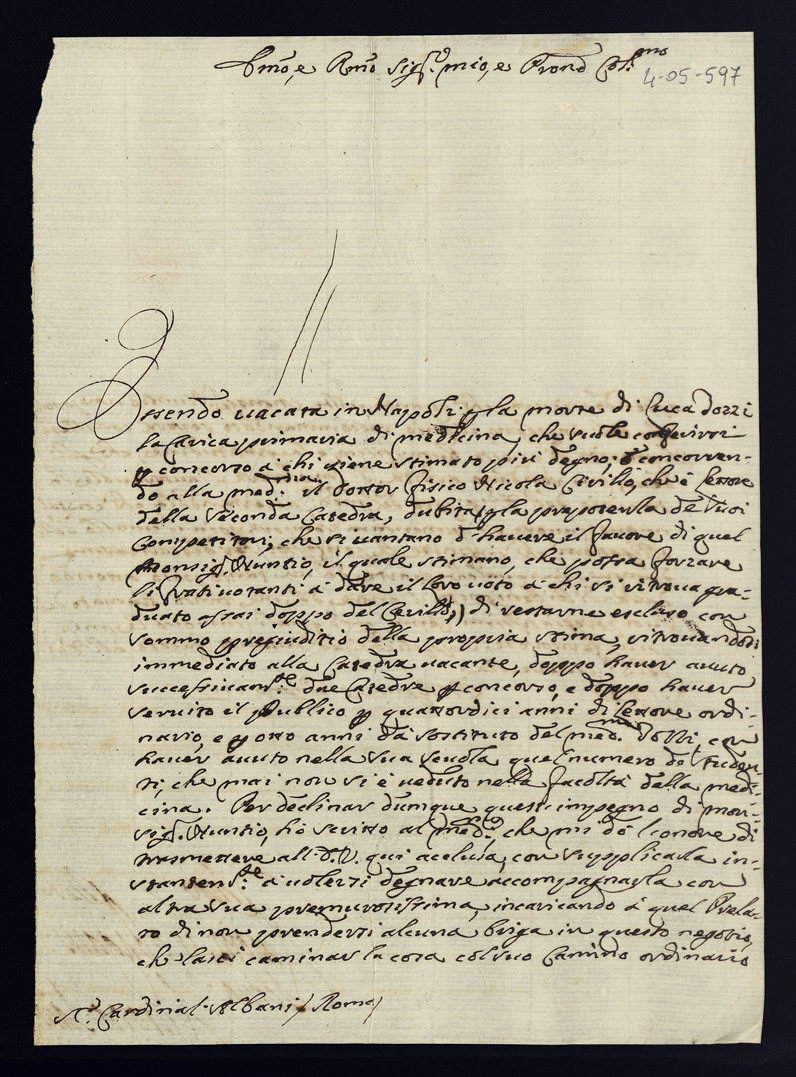 Em͞o, e Rm͞o Sig.r mio, e Pron͞e Col.mo
4-05-597
Essendo vacata in Napoli p la morte di Luca Tozzi
la Carica primaria di medicina, che suole conferirsi
p concorso à chi viene stimato più degno; e concorren-
do alla med.ma il Dottor fisico Nicola Cirillo, che è Lettore
della seconda Catedra, dubita p la preposenla de suoi
Competitori, che si vantano d'havere il favore di quel
Monsig.r Nuntio, il quale stimano, che possa forzare
li votanti à dare il loro voto à chi si ritrova gra-
duato assai doppo del Cirillo, di restarne escluso con
sommo pregiuditio della propria stima, ritrovandosi
immediato alla Catedra vacante, doppo haver avuto
successivam.te due Catedre p concorso, e doppo haver
servito il Publico p quattordici anni di Lettore ordi-
nario, e p otto anni da sostituto del med.mo Tozzi, con
haver avuto nella sua scuola quel numero di studen-
ti, che mai non si è veduto nella facoltà della medi-
cina. Per declinar dunque quest'impegno di mon-
sig.r Nuntio, hò scritto al med.mo, che mi dà l'onore di
trasmettere all'E.V. qui aclusa, con supplicarla in-
stantem.te à volersi degnare accompagnarla con
altra sua premurosissima, incaricando à quel Prela-
to di non prendersi alcuna briga in questo negotio,
ch lasci caminar la cosa col suo Camino ordinario
S.r Cardinal Albani / Roma /